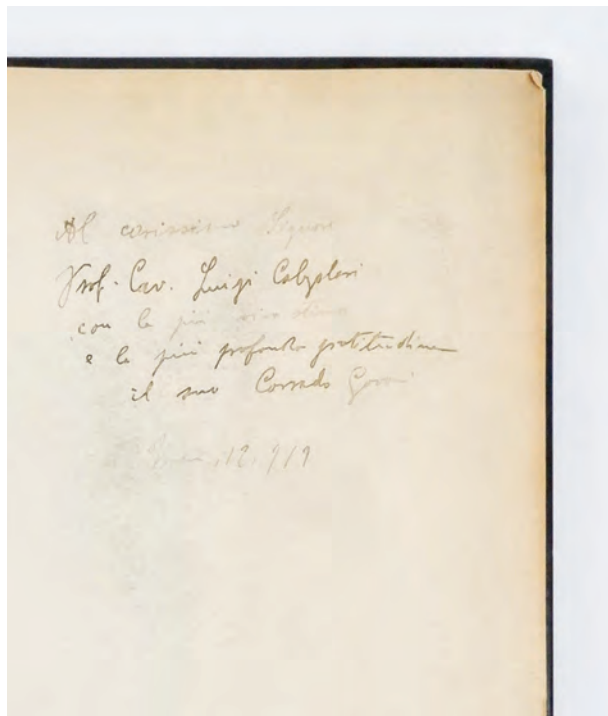 Al carissimo Signore
Prof. Cav. Luigi
con la più viva stima
e la più profonda gratitudine
il suo Corrado Govoni
12, 919